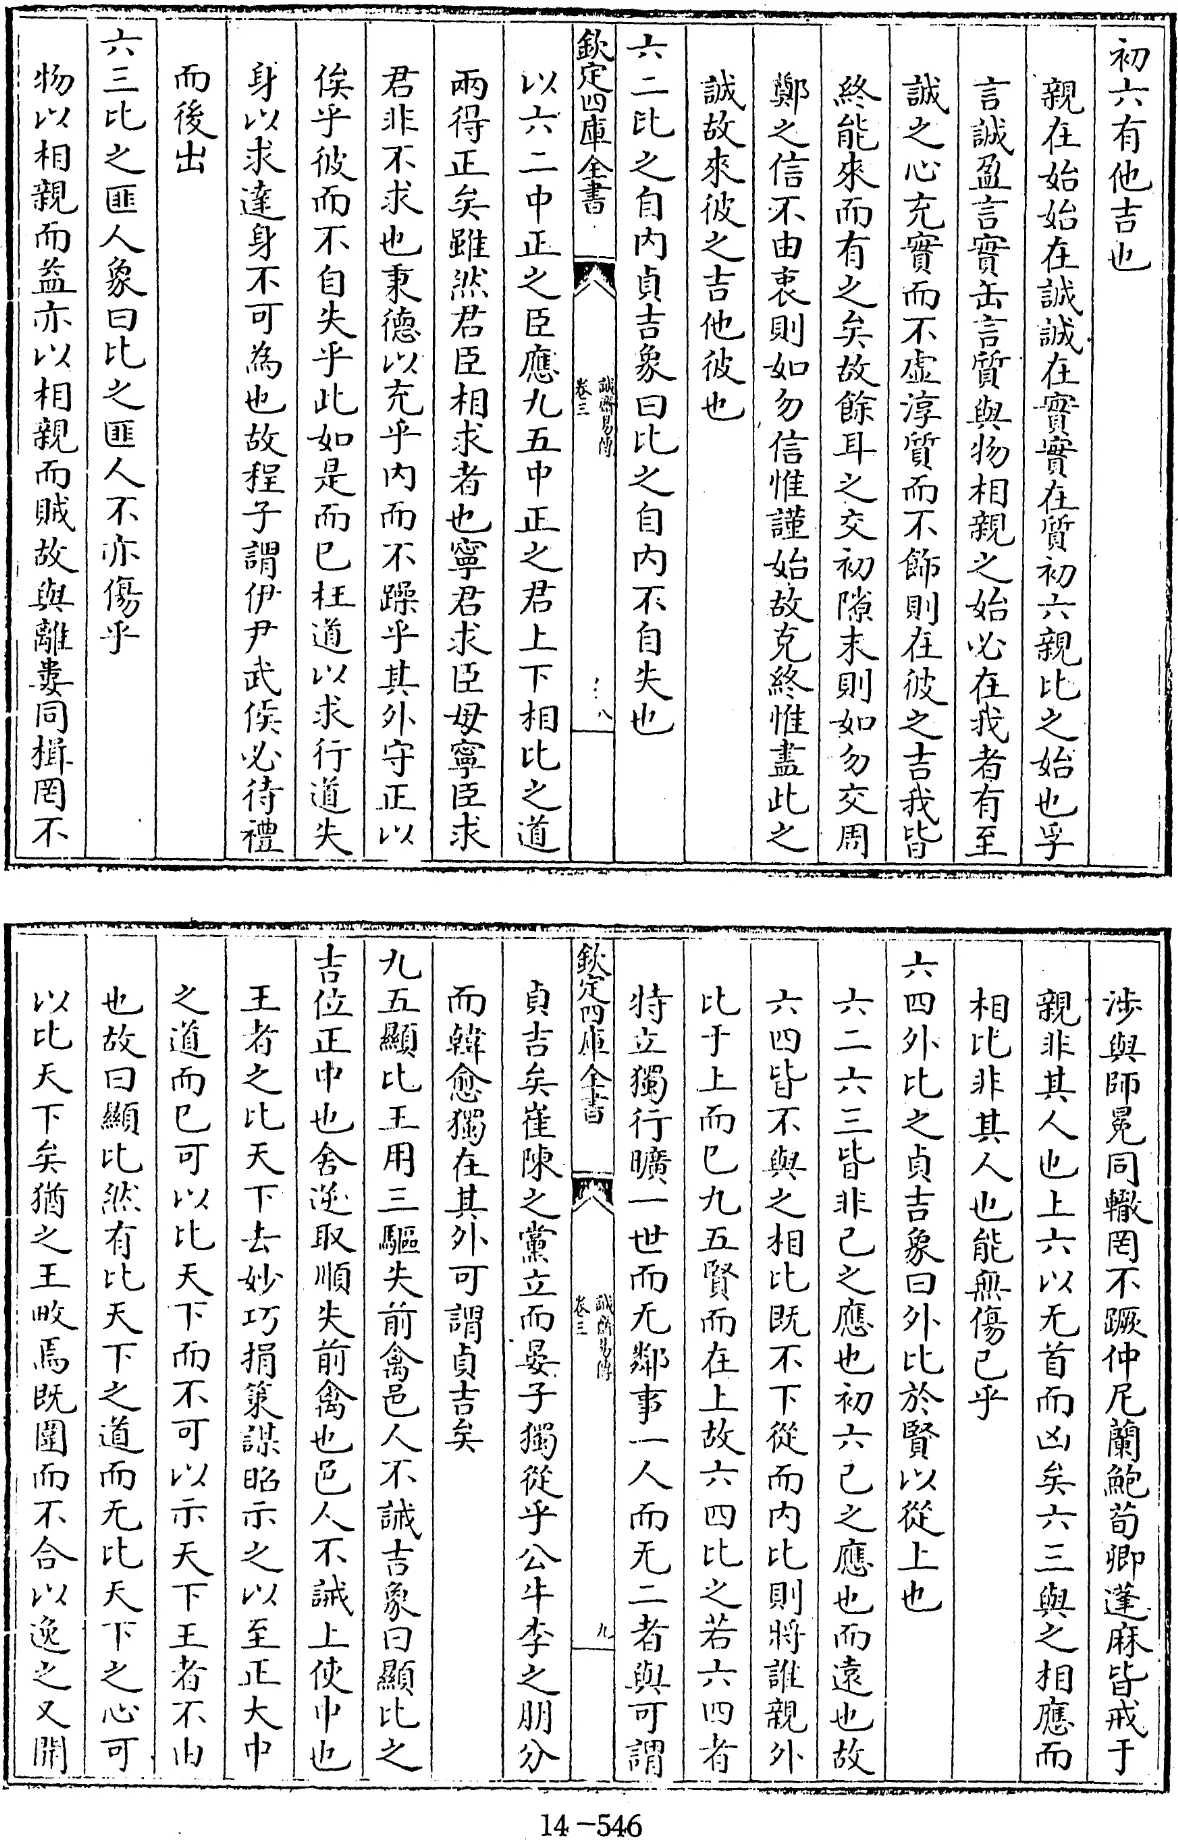 初六有他吉也
親在始始在誠誠在實實在質初六親比之始也孚
言誠盈言實缶言質與物相親之始必在我者有至
誠之心充實而不虛淳質而不飾則在彼之吉我皆
終能來而有之矣故餘耳之交初隙末則如勿交周
鄭之信不由衷則如勿信惟謹始故克終惟盡此之
誠故來彼之吉他彼也
六二比之自内貞吉象曰比之自内不自失也
欽定四庫全書
誠齋易傳
卷三
八
以六二中正之臣應九五中正之君上下相比之道
兩得正矣雖然君臣相求者也寧君求臣毋寧臣求
君非不求也秉德以充乎内而不躁乎其外守正以
俟乎彼而不自失乎此如是而已枉道以求行道失
身以求達身不可為也故程子謂伊尹武侯必待禮
而後出
六三比之匪人象曰比之匪人不亦傷乎
物以相親而益亦以相親而賊故與離婁同楫罔不
涉與師冕同轍罔不蹶仲尼蘭鮑荀卿蓬麻皆戒于
親非其人也上六以无首而凶矣六三與之相應而
相比非其人也能無傷已乎
六四外比之貞吉象曰外比於賢以從上也
六二六三皆非己之應也初六己之應也而遠也故
六四皆不與之相比既不下從而内比則將誰親外
比于上而已九五賢而在上故六四比之若六四者
特立獨行曠一世而无鄰事一人而无二者與可謂
欽定四庫全書
誠齋易傳
卷三
九
貞吉矣崔陳之黨立而晏子獨從乎公牛李之朋分
而韓愈獨在其外可謂貞吉矣
九五顯比王用三驅失前禽邑人不誡吉象曰顯比之
吉位正中也舍逆取順失前禽也邑人不誡上使中也
王者之比天下去妙巧捐策謀昭示之以至正大中
之道而已可以比天下而不可以示天下王者不由
也故曰顯比然有比天下之道而无比天下之心可
以比天下矣猶之王畋焉既圍而不合以逸之又開
14-546